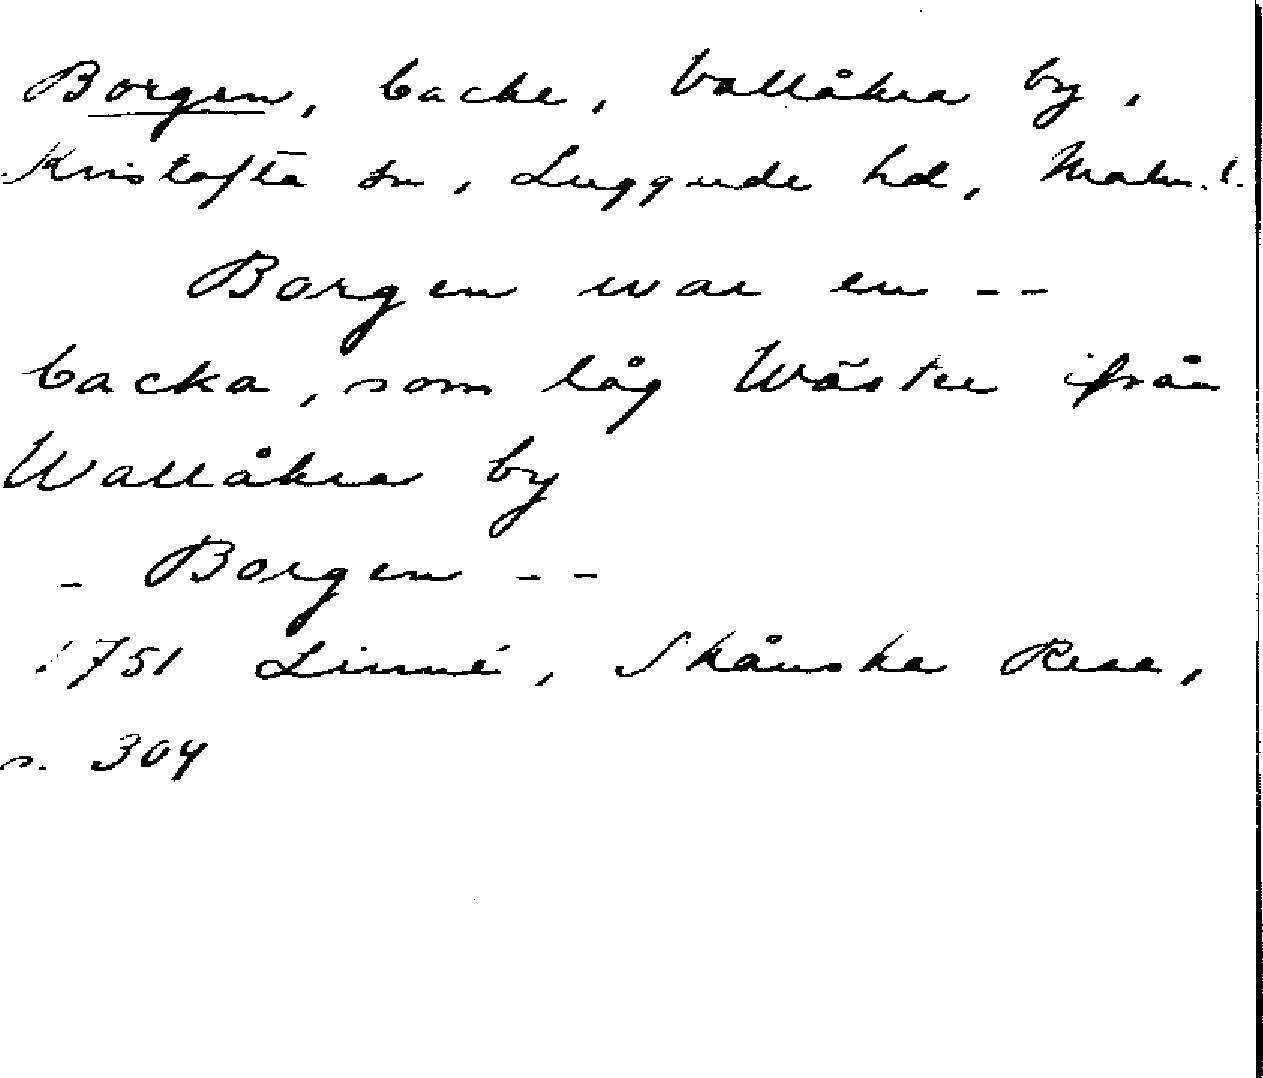 Borgen, backe, Vallåkra by,
Kvistofta sn, Luggude hd, Malm. l.
Borgen war en --
backa, som låg Wäster ifrån
Wallåkra by
- Borgen --
1751 Linné, Skånska Resa,
s. 304